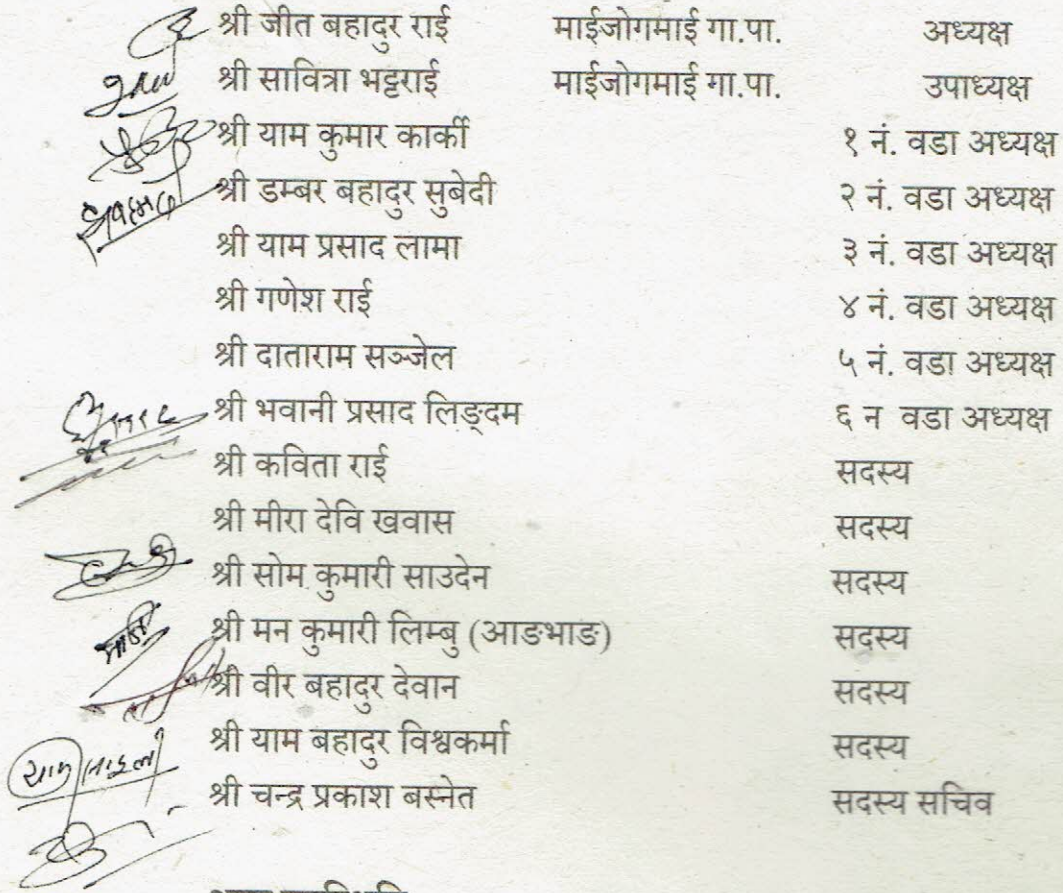 श्री जीत बहादुर राई माईजोगमाई गा.पा. अध्यक्ष
श्री सावित्रा भट्टराई माईजोगमाई गा.पा. उपाध्यक्ष
श्री याम कुमार कार्की १ नं. वडा अध्यक्ष
श्री डम्बर बहादुर सुबेदी २ नं. वडा अध्यक्ष
श्री याम प्रसाद लामा ३ नं. वडा अध्यक्ष
श्री गणेश राई ४ नं. वडा अध्यक्ष
श्री दाताराम सञ्जेल ५ नं. वडा अध्यक्ष
श्री भवानी प्रसाद लिङ्दम ६ न वडा अध्यक्ष
श्री कविता राई सदस्य
श्री मीरा देवि खवास सदस्य
श्री सोम कुमारी साउदेन सदस्य
श्री मन कुमारी लिम्बु (आङभाङ) सदस्य
श्री वीर बहादुर देवान सदस्य
श्री याम बहादुर विश्वकर्मा सदस्य
श्री चन्द्र प्रकाश बस्नेत सदस्य सचिव